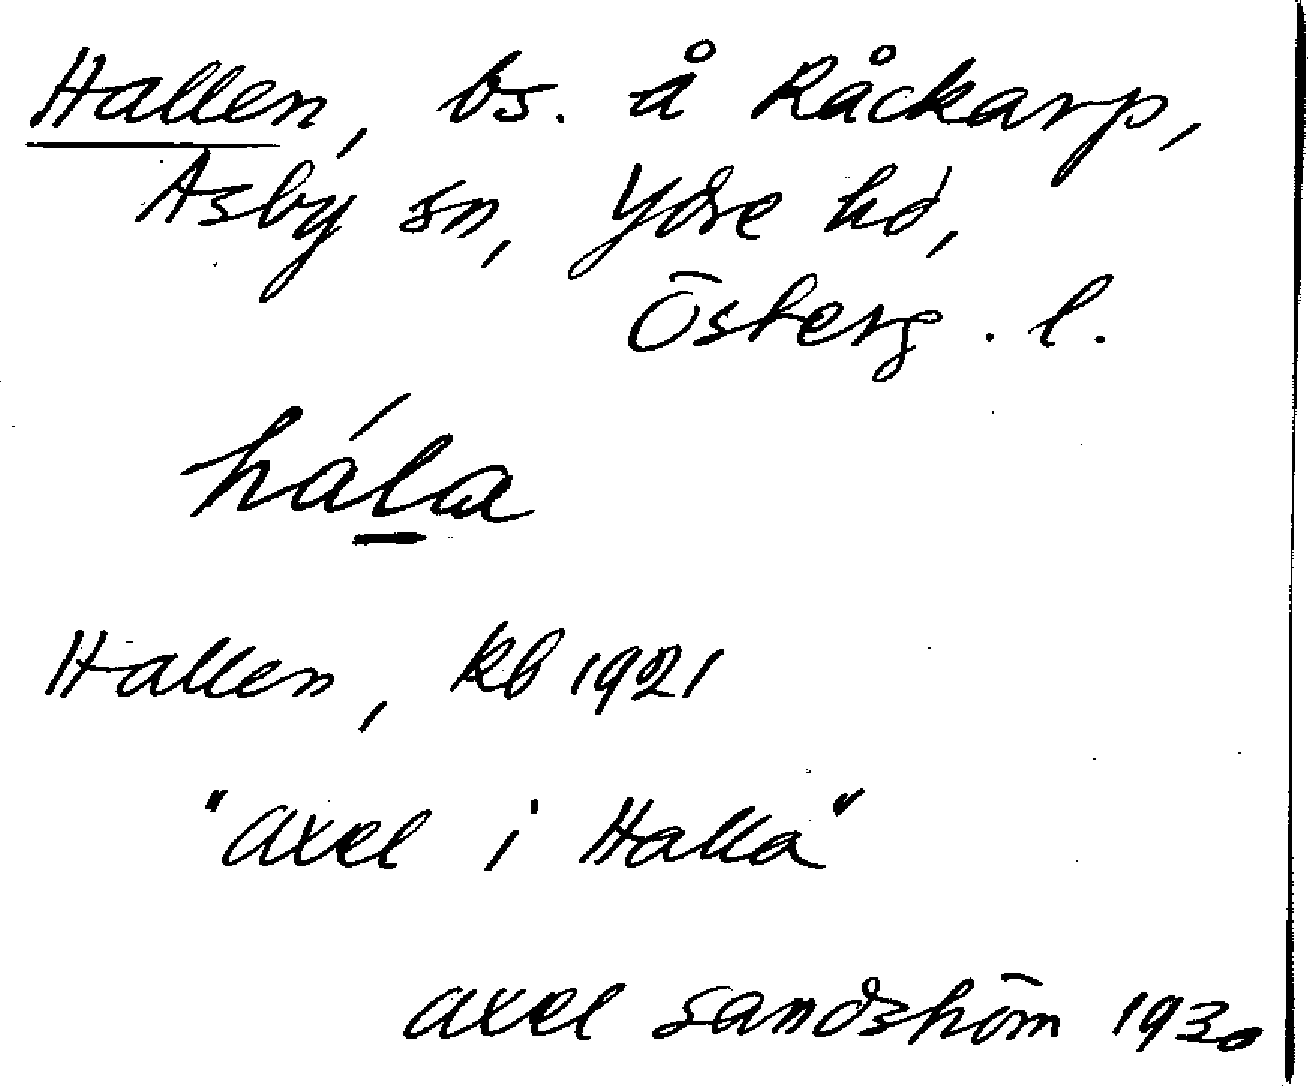 Hallen, bs. å Råckarp,
Asby sn, Ydre hd,
Österg. l.
hála
Hallen, kb 1921
"Axel i Halla"
Axel Sandström 1930